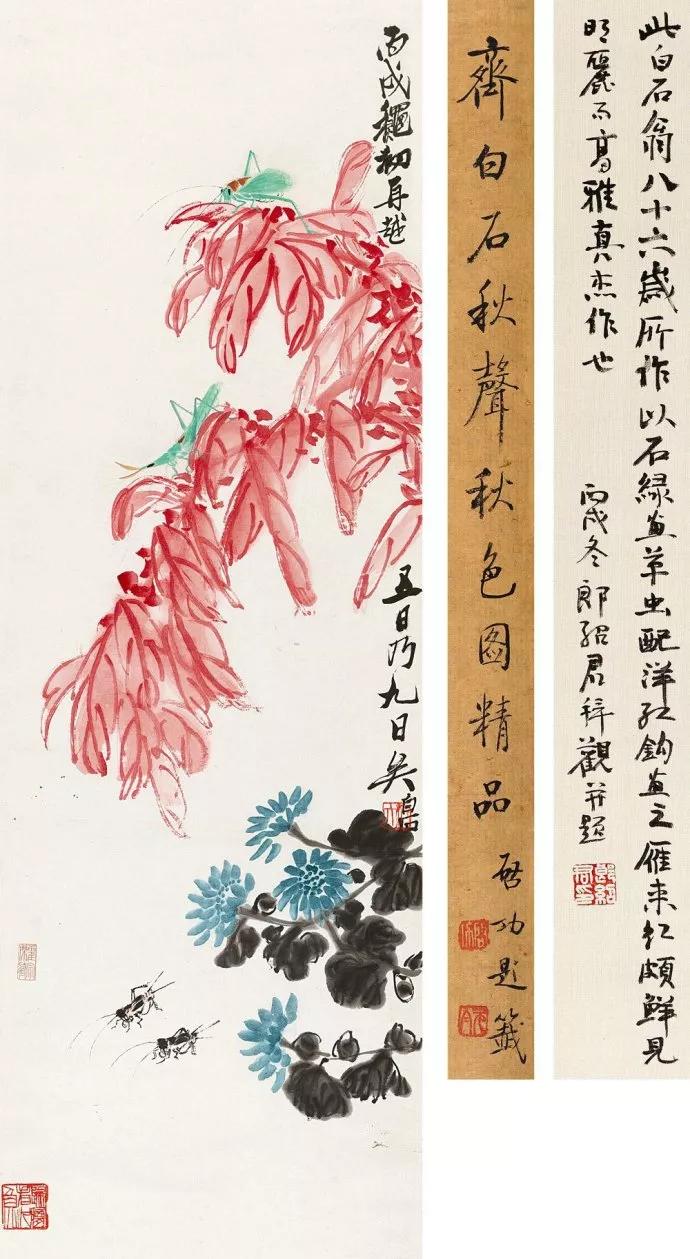 此白石翁八十六歲所作以石緑画草虫配洋紅鈎画之雁来紅頗鮮見
明麗而高雅真杰作也
丙戌冬郎紹君拜觀并題
齊白石秋聲秋色圖精品
啓功題籤
丙戌穐初再越
五日乃九日矣白石